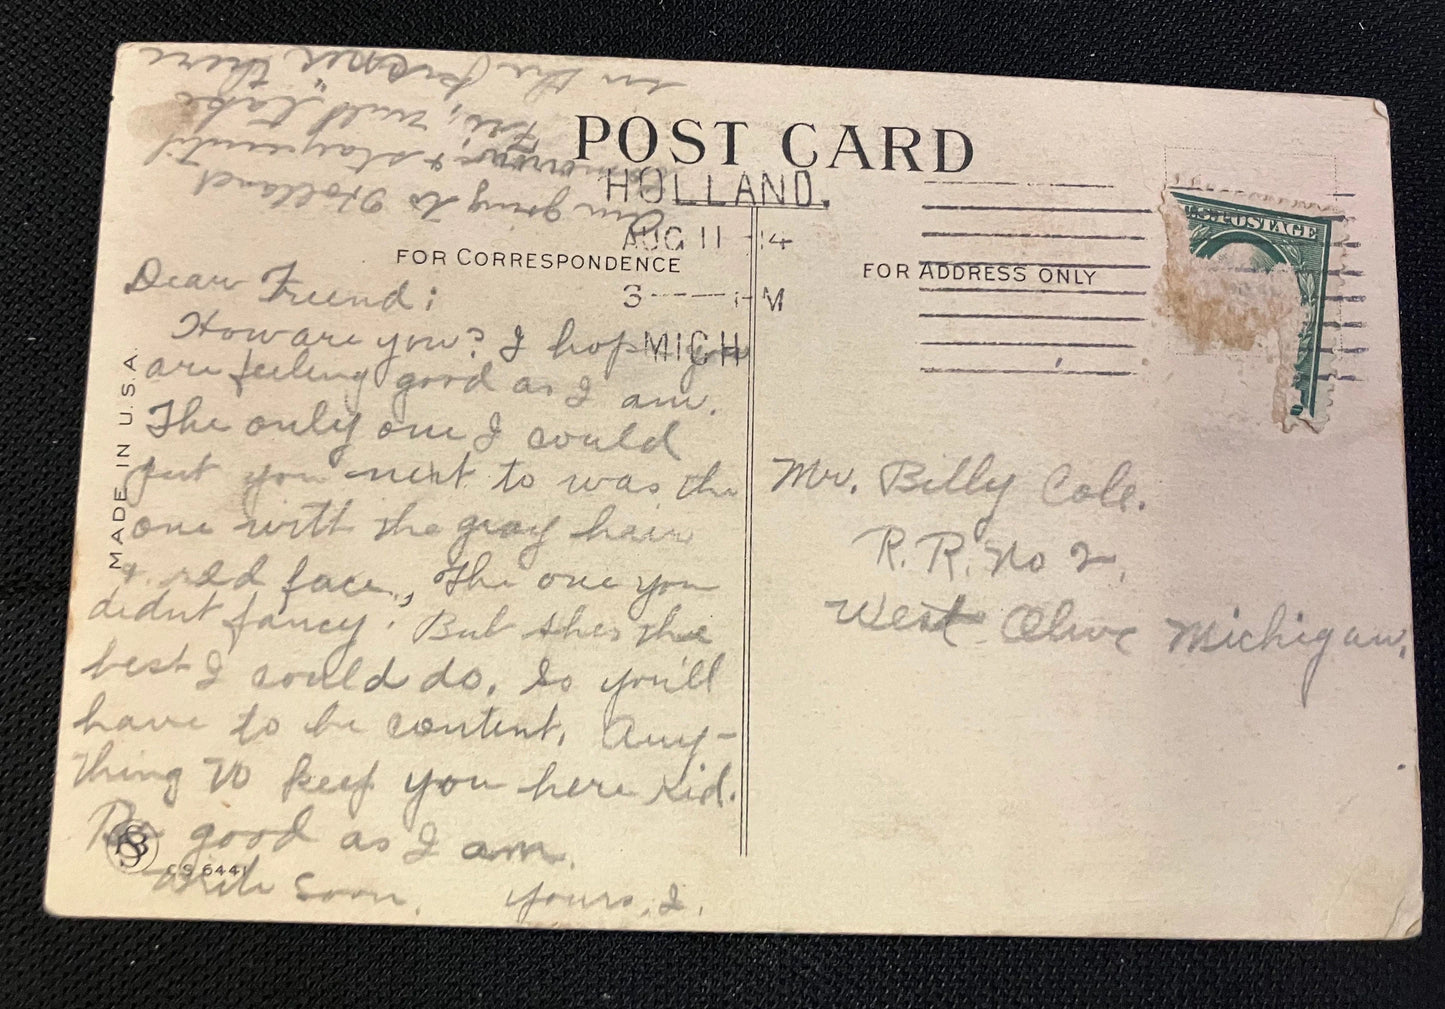 POST CARD
HOLLAND.
AUG 11 14
3 M
MICH
U.S. POSTAGE
FOR CORRESPONDENCE
FOR ADDRESS ONLY
MADE IN U.S.A.
Dear Friend:
How are you? I hope you
are feeling good as I am.
The only one I could
put you next to was the
one with the gray hair
& red face, the one you
didnt fancy. But shes the
best I could do. So you'll
have to be content. Any-
thing to keep you here kid.
Be good as I am.
Write soon. Yours, I.
CS 6441
Am going to Holland
tomorrow, & stay until
Fri, will take
in the there
Mr. Billy Cole.
R. R. No 2.
West Olive Michigan.